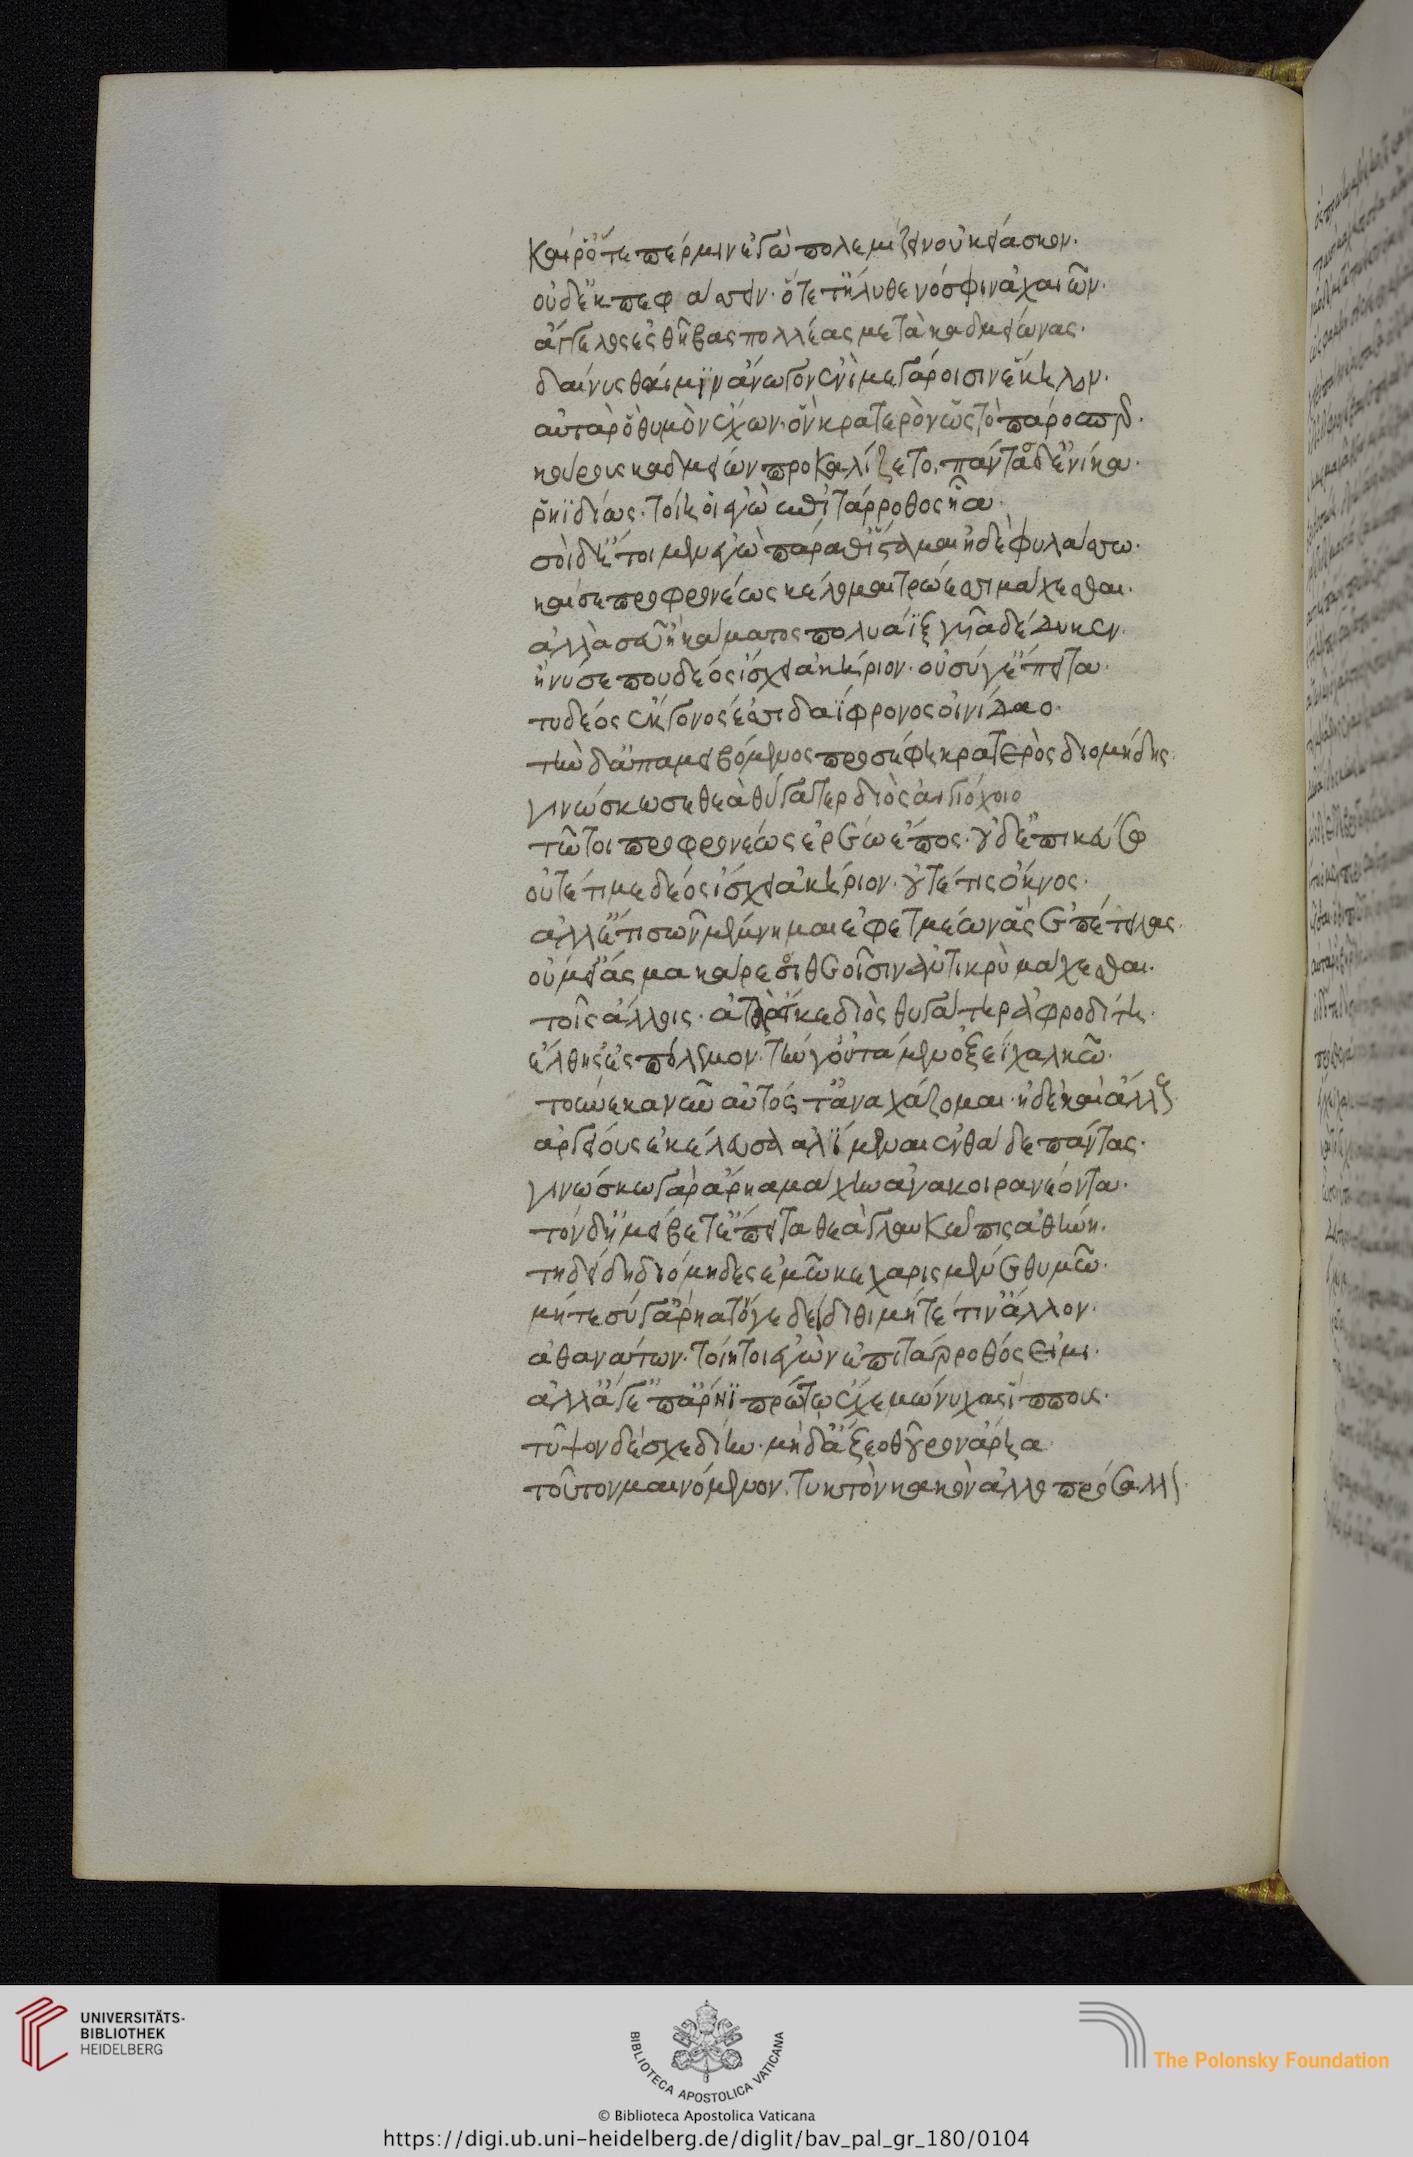 καί ῥ' ὅτε πέρ μιν ἐγὼ πολεμίζειν οὐκ εἴασκον·
οὐδ' ἐκπεφάσσειν· ὅτε τ' ἤλυθε νόσφιν ἀχαιῶν·
ἄγγελος ἐς θήβας πολλέας μετὰ καδμείωνας·
δαίνυσθαί μιν ἄνωγον ἐνὶ μεγάροισιν ἔκηλον·
αὐτὰρ ὃ θυμὸν ἔχων· ὃν κρατερὸν ὥς τὸ πάρος περ·
κούρους καδμείων προκαλίζετο, πάντα δ' ἐνίκα·
ῥηϊδίως· τοίη οἱ ἐγὼ ἐπιτάρροθος ἦα·
σοὶ δ' ἤτοι μὲν ἐγὼ παρά θ' ἵσταμαι ἠδὲ φυλάσσω·
καί σε προφρονέως κέλομαι τρώεσσι μάχεσθαι·
ἀλλὰ σοῦ ἢ κάματος πολυάϊξ γυῖα δέδυκεν·
ἤ νύ σέ που δέος ἴσχει ἀκήριον· οὐ σύ γ' ἔπειτα·
τυδέος ἔκγονός ἐσσι δαΐφρονος οἰνίδαο·
τὴν δ' ἀπαμειβόμενος προσέφη κρατερὸς διομήδης·
γινώσκω σε θεὰ θύγατερ διὸς αἰγιόχοιο
τῶ τοι προφρονέως ἐρέω ἔπος· οὐδ' ἐπικεύσω
οὔτέ τί με δέος ἴσχει ἀκήριον· οὔτέ τις ὄκνος·
ἀλλ' ἔτι σῶν μέμνημαι ἐφετμέων ἃς ἐπέτειλας·
οὔ μ' εἴας μακάρεσσι θεοῖσιν ἀντικρὺ μάχεσθαι·
τοῖς ἄλλοις· ἀτὰρ εἴ κε διὸς θυγάτηρ ἀφροδίτη·
ἔλθησ' ἐς πόλεμον· τήν γ' οὐτάμεν ὀξέϊ χαλκῶ·
τοὔνεκα νῦν αὐτός τ' ἀναχάζομαι· ἠδὲ καὶ ἄλλους
ἀργείους ἐκέλευσα ἀλήμεναι ἐνθάδε πάντας·
γινώσκω γὰρ ἄρηα μάχην ἀνακοιρανέοντα·
τὸν δ' ἠμείβετ' ἔπειτα θεὰ γλαυκῶπις ἀθήνη·
τυδείδη διόμηδες ἐμῶ κεχαρισμένε θυμῶ·
μήτε σύ γ' ἄρηα τόγε δείδιθι μήτέ τιν' ἄλλον·
ἀθανάτων· τοίη τοι ἐγὼν ἐπιτάρροθός εἰμι·
ἀλλ' ἄγ' ἐπ' ἄρηϊ πρώτω ἔχε μώνυχας ἵππους·
τύψον δὲ σχεδίην· μὴ δ' ἅζεο θοῦρον ἄρηα
τοῦτον μαινόμενον· τυκτὸν κακὸν ἀλλοπρόσαλλον·
UNIVERSITÄTS-
BIBLIOTHEK
HEIDELBERG
BIBLIOTECA APOSTOLICA VATICANA
The Polonsky Foundation
© Biblioteca Apostolica Vaticana
https://digi.ub.uni-heidelberg.de/diglit/bav_pal_gr_180/0104